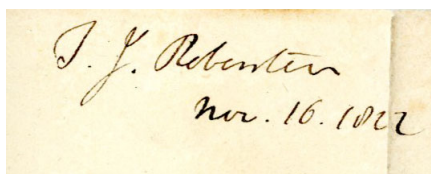 T. J. Robertson
Nov. 16. 1822